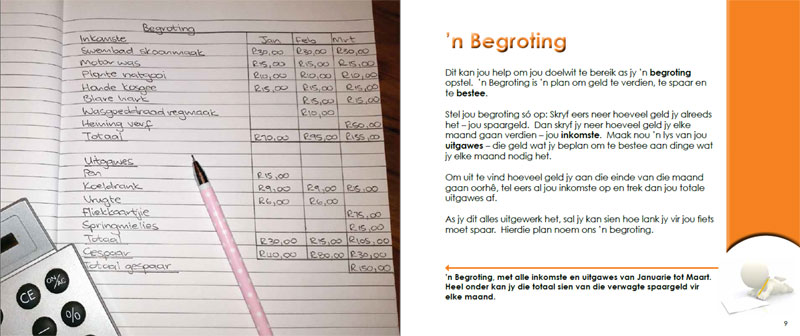 Begroting
Inkomste Jan Feb Mrt
Swembad skoonmaak R30,00 R30,00 R30,00
Motor was R15,00 R15,00 R15,00
Plante natgooi R10,00 R10,00 R10,00
Honde kosgee R15,00 R15,00 R15,00
Blare hark R15,00 R15,00
Wasgoeddraad regmaak R10,00
Heining verf R50,00
Totaal R70,00 R95,00 R135,00
Uitgawes
Pen R15,00
Koeldrank R9,00 R9,00 R15,00
Vrugte R6,00 R6,00
Fliekkaartjie R75,00
Springmielies R15,00
Totaal R30,00 R15,00 R105,00
Gespaar R40,00 R80,00 R30,00
Totaal gespaar R150,00
CE
ON/AC
%
−
'n Begroting
Dit kan jou help om jou doelwit te bereik as jy 'n begroting
opstel. 'n Begroting is 'n plan om geld te verdien, te spaar en
te bestee.
Stel jou begroting só op: Skryf eers neer hoeveel geld jy alreeds
het – jou spaargeld. Dan skryf jy neer hoeveel geld jy elke
maand gaan verdien – jou inkomste. Maak nou 'n lys van jou
uitgawes – die geld wat jy beplan om te bestee aan dinge wat
jy elke maand nodig het.
Om uit te vind hoeveel geld jy aan die einde van die maand
gaan oorhê, tel eers al jou inkomste op en trek dan jou totale
uitgawes af.
As jy dit alles uitgewerk het, sal jy kan sien hoe lank jy vir jou fiets
moet spaar. Hierdie plan noem ons 'n begroting.
'n Begroting, met alle inkomste en uitgawes van Januarie tot Maart.
Heel onder kan jy die totaal sien van die verwagte spaargeld vir
elke maand.
9